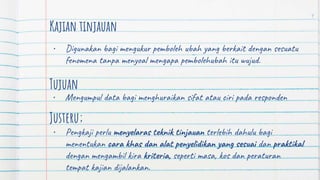 Kajian tinjauan
• Digunakan bagi mengukur pemboleh ubah yang berkait dengan sesuatu
fenomena tanpa menyoal mengapa pembolehubah itu wujud.
Tujuan
• Mengumpul data bagi menghuraikan sifat atau ciri pada responden
Justeru;
• Pengkaji perlu menyelaras teknik tinjauan terlebih dahulu bagi
menentukan sara khas dan alat penyelidikan yang sesuai dan praktikal
dengan mengambil kira kriteria, seperti masa, kos dan peraturan
tempat kajian dijalankan.